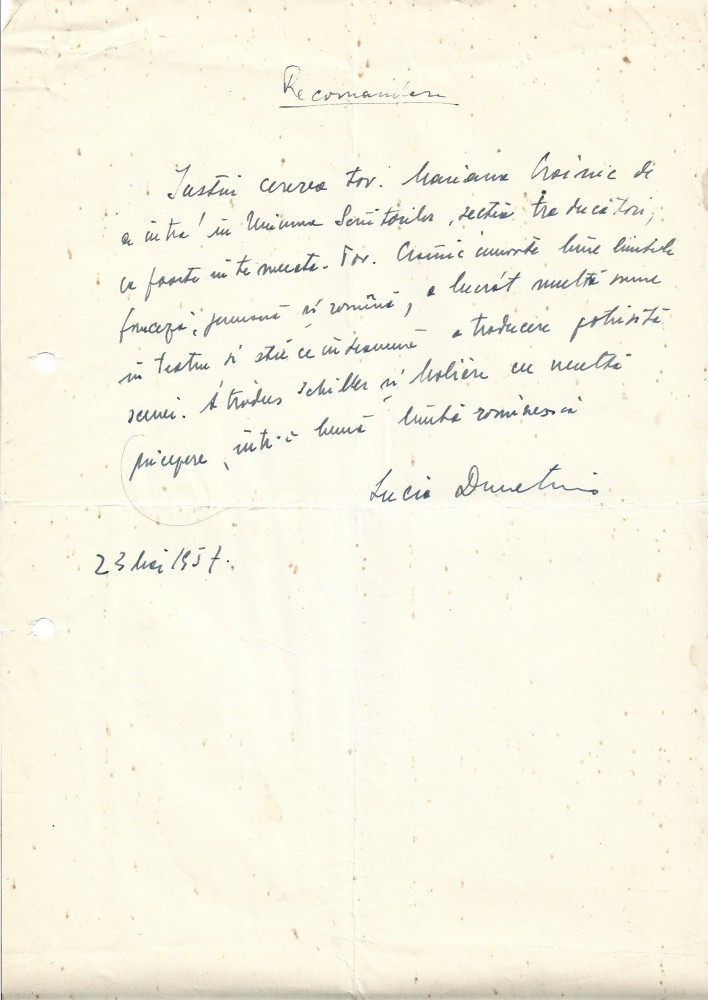 Recomandare
Susțin cererea tov. Mariana Crainic de
a intra în Uniunea Scriitorilor, secția traducători,
ca foarte întemeiată. Tov. Crainic cunoaște bine limbile
franceză, germană și română, a lucrat multă vreme
în teatru și știe ce înseamnă o traducere potrivită
scenei. A tradus Schiller și Molière cu multă
pricepere, într-o bună limbă românească
Lucia Demetrius
23 Mai 1957.